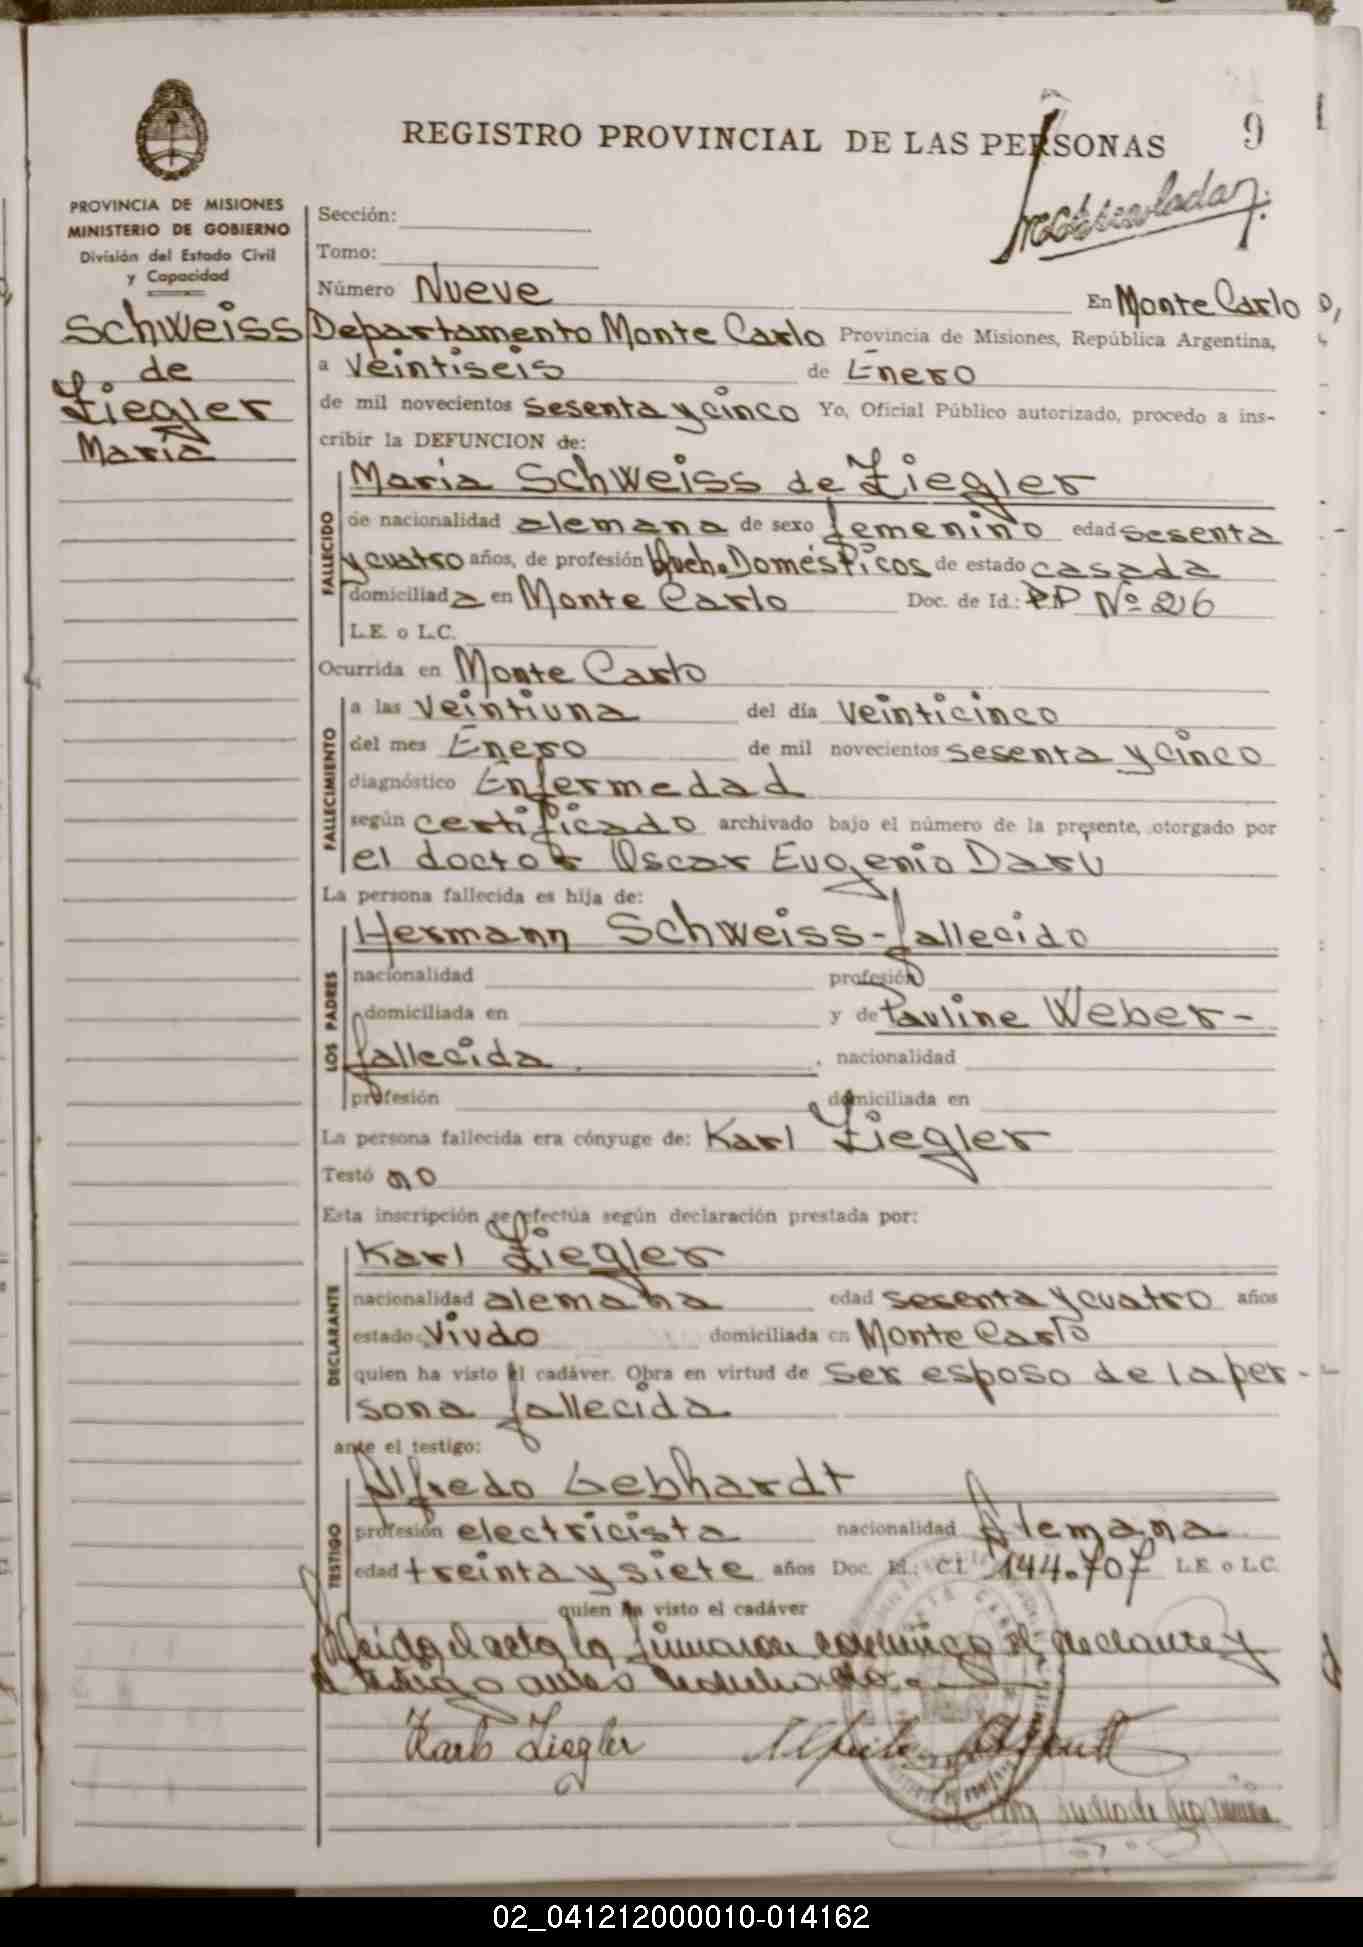 REGISTRO PROVINCIAL DE LAS PERSONAS
9
PROVINCIA DE MISIONES
MINISTERIO DE GOBIERNO
División del Estado Civil
y Capacidad
Schweiss
de
Ziegler
María
Sección:
Tomo:
Número Nueve En Monte Carlo
Departamento Monte Carlo Provincia de Misiones, República Argentina,
a Veintiseis de Enero
de mil novecientos sesenta y cinco Yo, Oficial Público autorizado, procedo a ins-
cribir la DEFUNCION de:
FALLECIDO
Maria Schweiss de Ziegler
de nacionalidad alemana de sexo femenino edad sesenta
y cuatro años, de profesión Queh. Domésticos de estado casada
domiciliada en Monte Carlo Doc. de Id.: Nº 216
L.E. o L.C.
Ocurrida en Monte Carlo
FALLECIMIENTO
a las veintiuna del día veinticinco
del mes Enero de mil novecientos sesenta y cinco
diagnóstico Enfermedad
según certificado archivado bajo el número de la presente, otorgado por
el doctor Oscar Eugenio Darú
La persona fallecida es hija de:
LOS PADRES
Hermann Schweiss-fallecido
nacionalidad profesión
domiciliada en y de Pauline Weber-
fallecida nacionalidad
profesión domiciliada en
La persona fallecida era cónyuge de: Karl Ziegler
Testó no
Esta inscripción se efectúa según declaración prestada por:
DECLARANTE
Karl Ziegler
nacionalidad alemana edad sesenta y cuatro años
estado: viudo domiciliada en Monte Carlo
quien ha visto el cadáver. Obra en virtud de ser esposo de la per-
sona fallecida
ante el testigo:
TESTIGO
Alfredo Gebhardt
profesión electricista nacionalidad Alemana
edad treinta y siete años Doc. Id.: C.I. 144.707 L.E. o L.C.
quien ha visto el cadáver
Leída el acta la firmaron conmigo el declarante y
el testigo antes nombrado.
Karl Ziegler
02_041212000010-014162